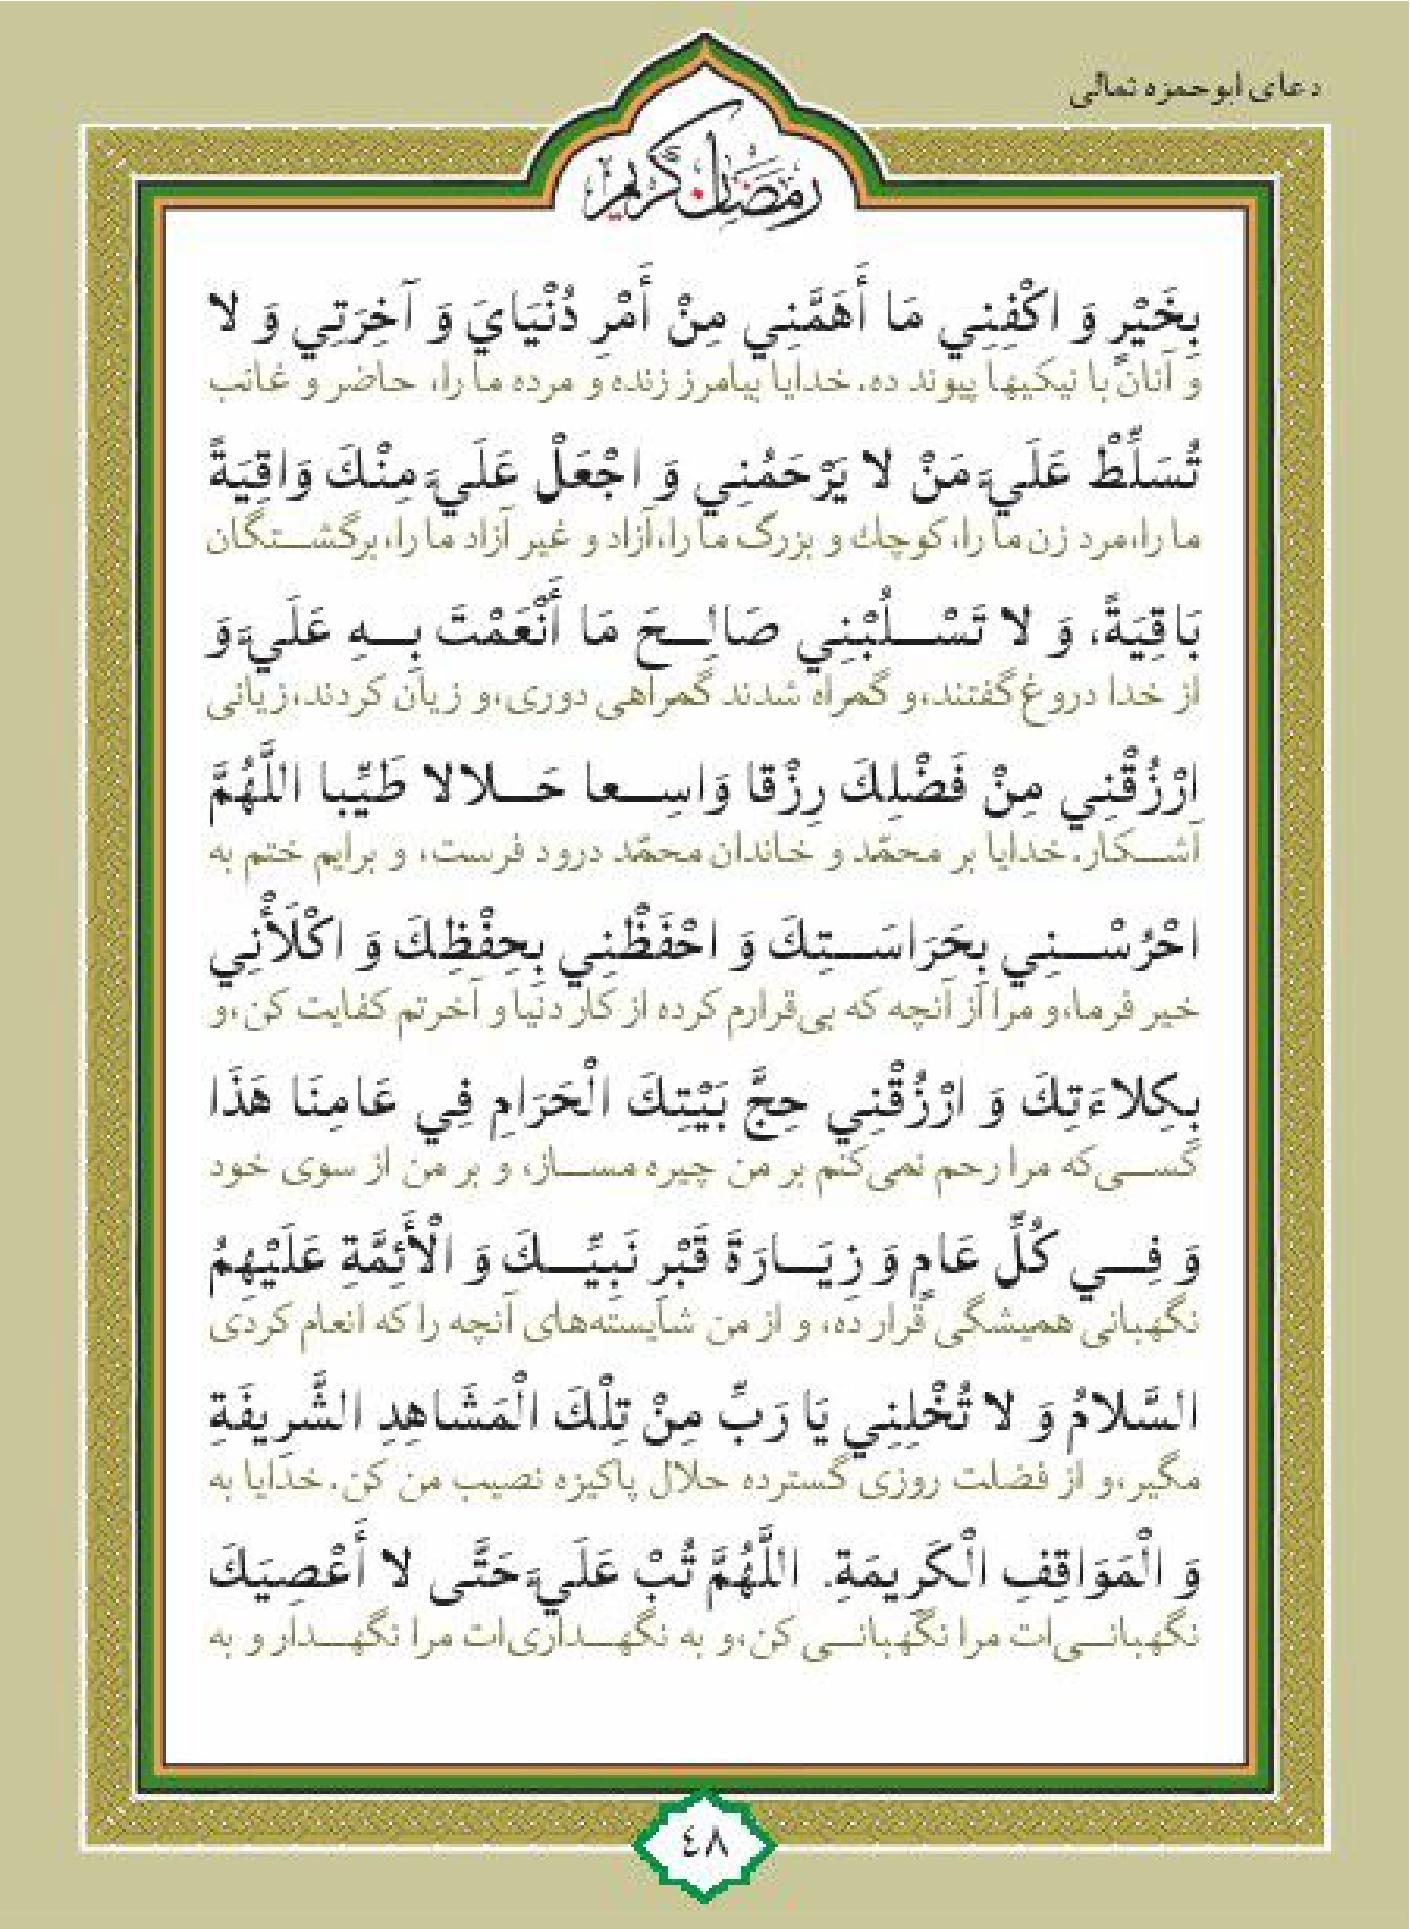 دعای ابوحمزه ثمالی
رمضان كريم
بِخَيْرٍ وَ اكْفِنِي مَا أَهَمَّنِي مِنْ أَمْرِ دُنْيَايَ وَ آخِرَتِي وَ لا
و آنان با نیکیها پیوند ده. خدایا بیامرز زنده و مرده ما را، حاضر و غائب
تُسَلِّطْ عَلَيَّ مَنْ لا يَرْحَمُنِي وَ اجْعَلْ عَلَيَّ مِنْكَ وَاقِيَةً
ما را،مرد زن ما را،کوچك و بزرگ ما را،آزاد و غیر آزاد ما را،برگشتگان
بَاقِيَةً، وَ لا تَسْلُبْنِي صَالِحَ مَا أَنْعَمْتَ بِهِ عَلَيَّ وَ
از خدا دروغ گفتند،و گمراه شدند گمراهی دوری،و زیان کردند،زیانی
ارْزُقْنِي مِنْ فَضْلِكَ رِزْقا وَاسِعا حَلالا طَيِّبا اللَّهُمَّ
آشکار. خدایا بر محمّد و خاندان محمّد درود فرست، و برایم ختم به
احْرُسْنِي بِحَرَاسَتِكَ وَ احْفَظْنِي بِحِفْظِكَ وَ اكْلَأْنِي
خیر فرما،و مرا از آنچه که بی‌قرارم کرده از کار دنیا و آخرتم کفایت کن،و
بِكِلاءَتِكَ وَ ارْزُقْنِي حِجَّ بَيْتِكَ الْحَرَامِ فِي عَامِنَا هَذَا
کسی‌که مرا رحم نمی‌کنم بر من چیره مساز، و بر من از سوی خود
وَ فِي كُلِّ عَامٍ وَ زِيَارَةَ قَبْرِ نَبِيِّكَ وَ الْأَئِمَّةِ عَلَيْهِمُ
نگهبانی همیشگی قرار ده، و از من شایسته‌های آنچه را که انعام کردی
السَّلامُ وَ لا تُخْلِنِي يَا رَبِّ مِنْ تِلْكَ الْمَشَاهِدِ الشَّرِيفَةِ
مگیر،و از فضلت روزی گسترده حلال پاکیزه نصیب من کن. خدایا به
وَ الْمَوَاقِفِ الْكَرِيمَةِ. اللَّهُمَّ تُبْ عَلَيَّ حَتَّى لا أَعْصِيَكَ
نگهبانی‌ات مرا نگهبانی کن،و به نگهداری‌ات مرا نگهدار و به
٤٨